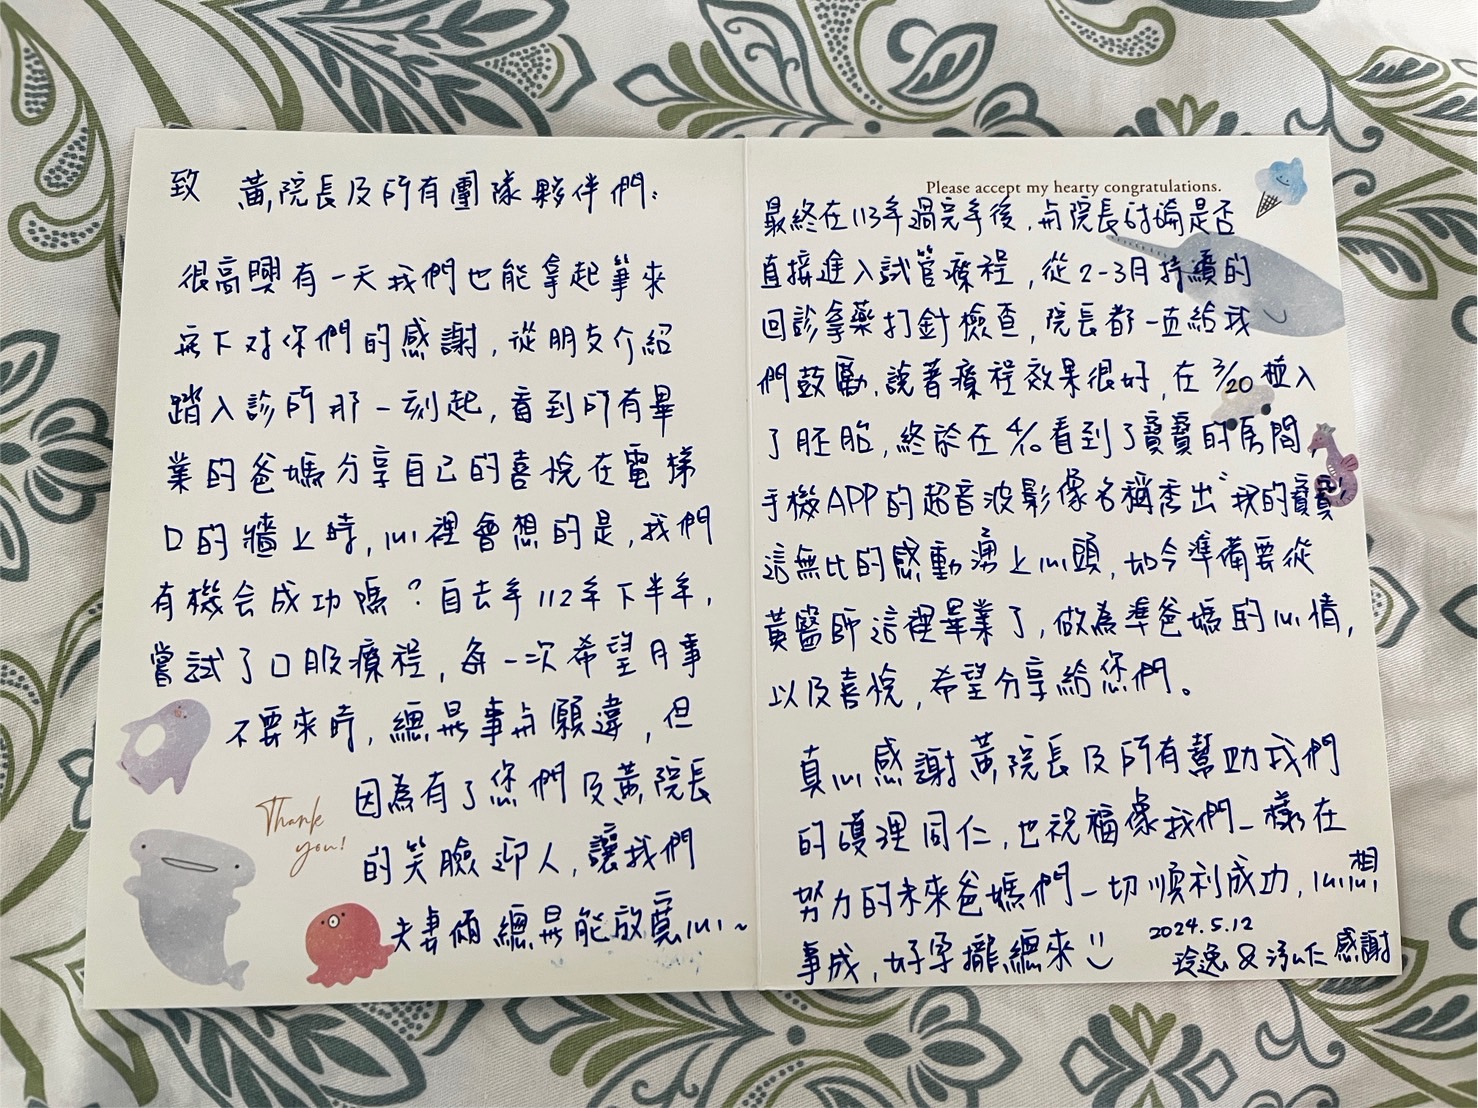 致 黃院長及所有團隊夥伴們:
很高興有一天我們也能拿起筆來
寫下对你們的感謝,從朋友介紹
踏入診所那一刻起,看到所有畢
業的爸媽分享自己的喜悅在電梯
口的牆上時,心裡會想的是,我們
有機会成功嗎?自去年112年下半年,
嘗試了口服療程,每一次希望月事
不要來時,總是事与願違,但
因為有了您們及黃院長
的笑臉迎人,讓我們
夫妻倆總是能放寬心~
Thank
you!
Please accept my hearty congratulations.
最終在113年過完年後,与院長討論是否
直接進入試管療程,從2-3月持續的
回診拿藥打針檢查,院長都一直給我
們鼓勵,說著療程效果很好,在3/20植入
了胚胎,終於在4/10看到了寶寶的房間,
手機APP的超音波影像名稱秀出"我的寶寶"
這無比的感動湧上心頭,如今準備要從
黃醫師這裡畢業了,做為準爸媽的心情,
以及喜悅,希望分享給您們。
真心感謝黃院長及所有幫助我們
的護理同仁,也祝福像我們一樣在
努力的未來爸媽們一切順利成功,心想
事成,好孕攏總來
2024.5.12
感謝